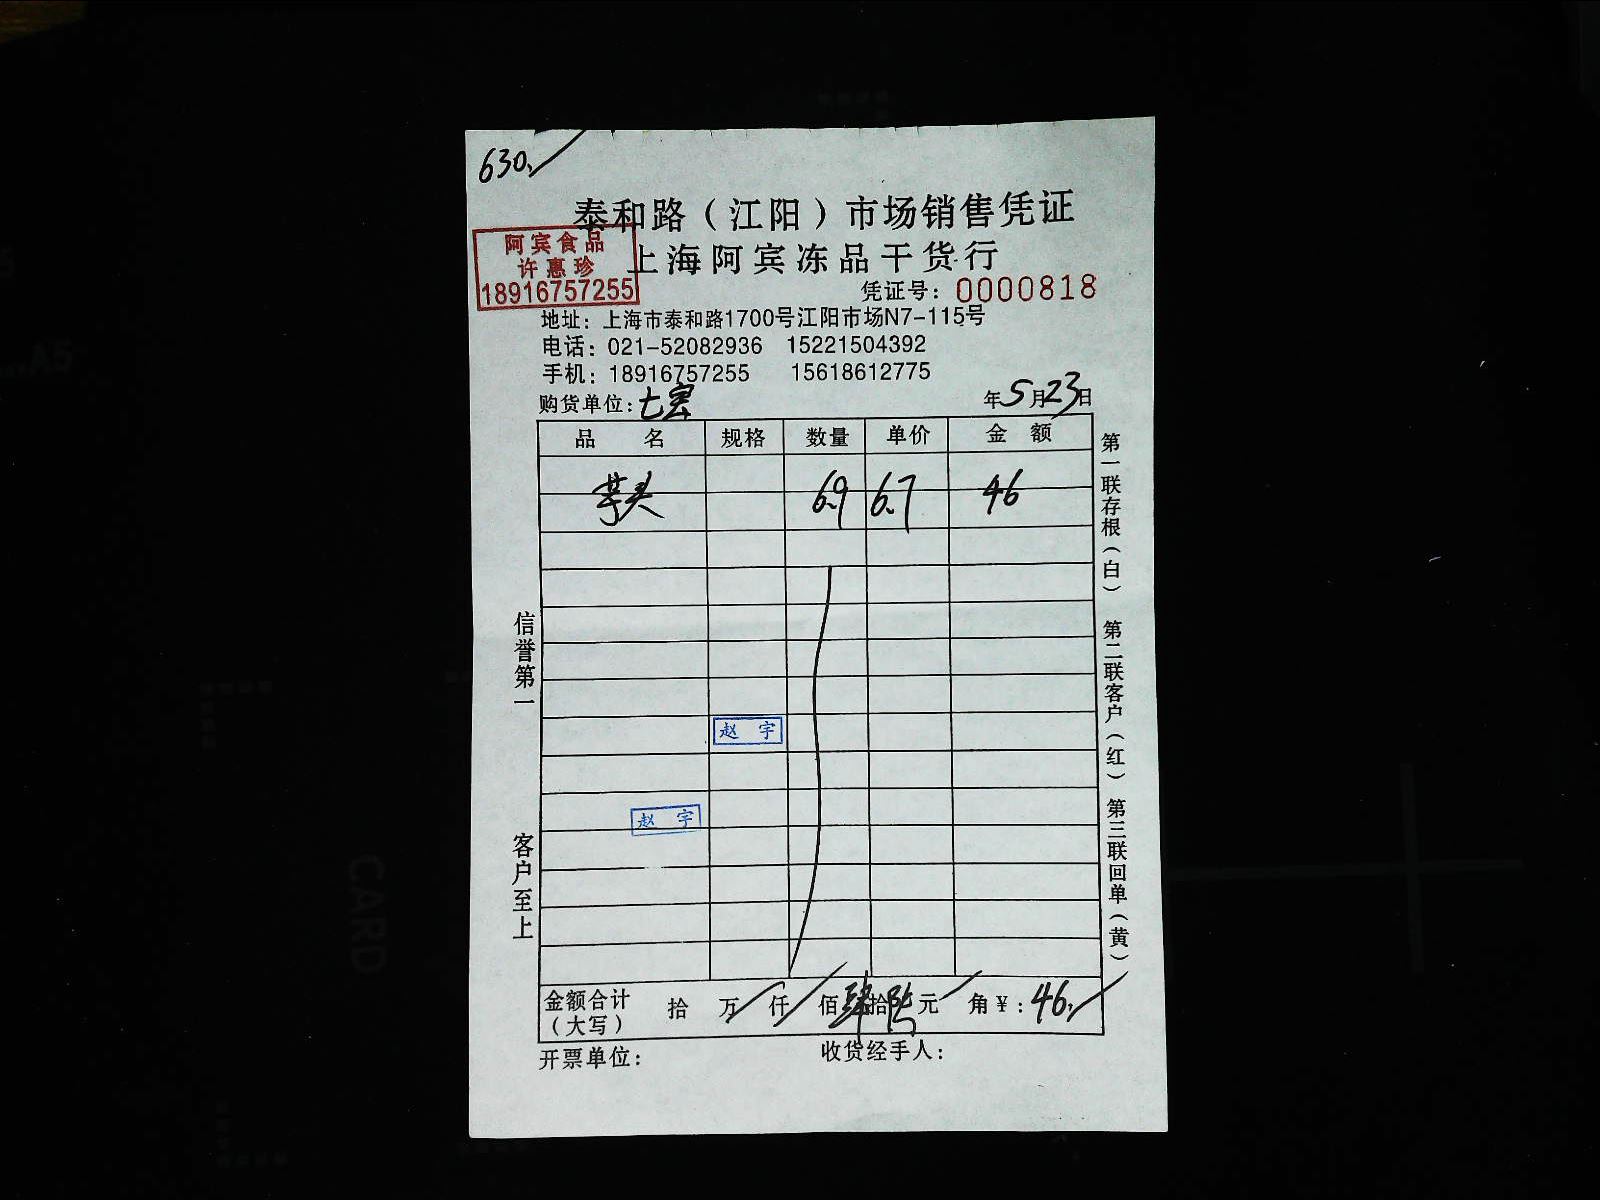 630,
泰和路（江阳）市场销售凭证
上海阿宾冻品干货行
阿宾食品
许惠珍
18916757255
凭证号：0000818
地址：上海市泰和路1700号江阳市场N7-115号
电话：021-52082936 15221504392
手机：18916757255 15618612775
购货单位：七宝 年5月23日
品名 规格 数量 单价 金额
芋头 6.9 6.7 46
赵宇
赵宇
金额合计（大写） 拾 万 仟 佰肆拾陆元 角¥：46,
开票单位： 收货经手人：
信誉第一 客户至上
第一联存根（白） 第二联客户（红） 第三联回单（黄）
CARD
A5